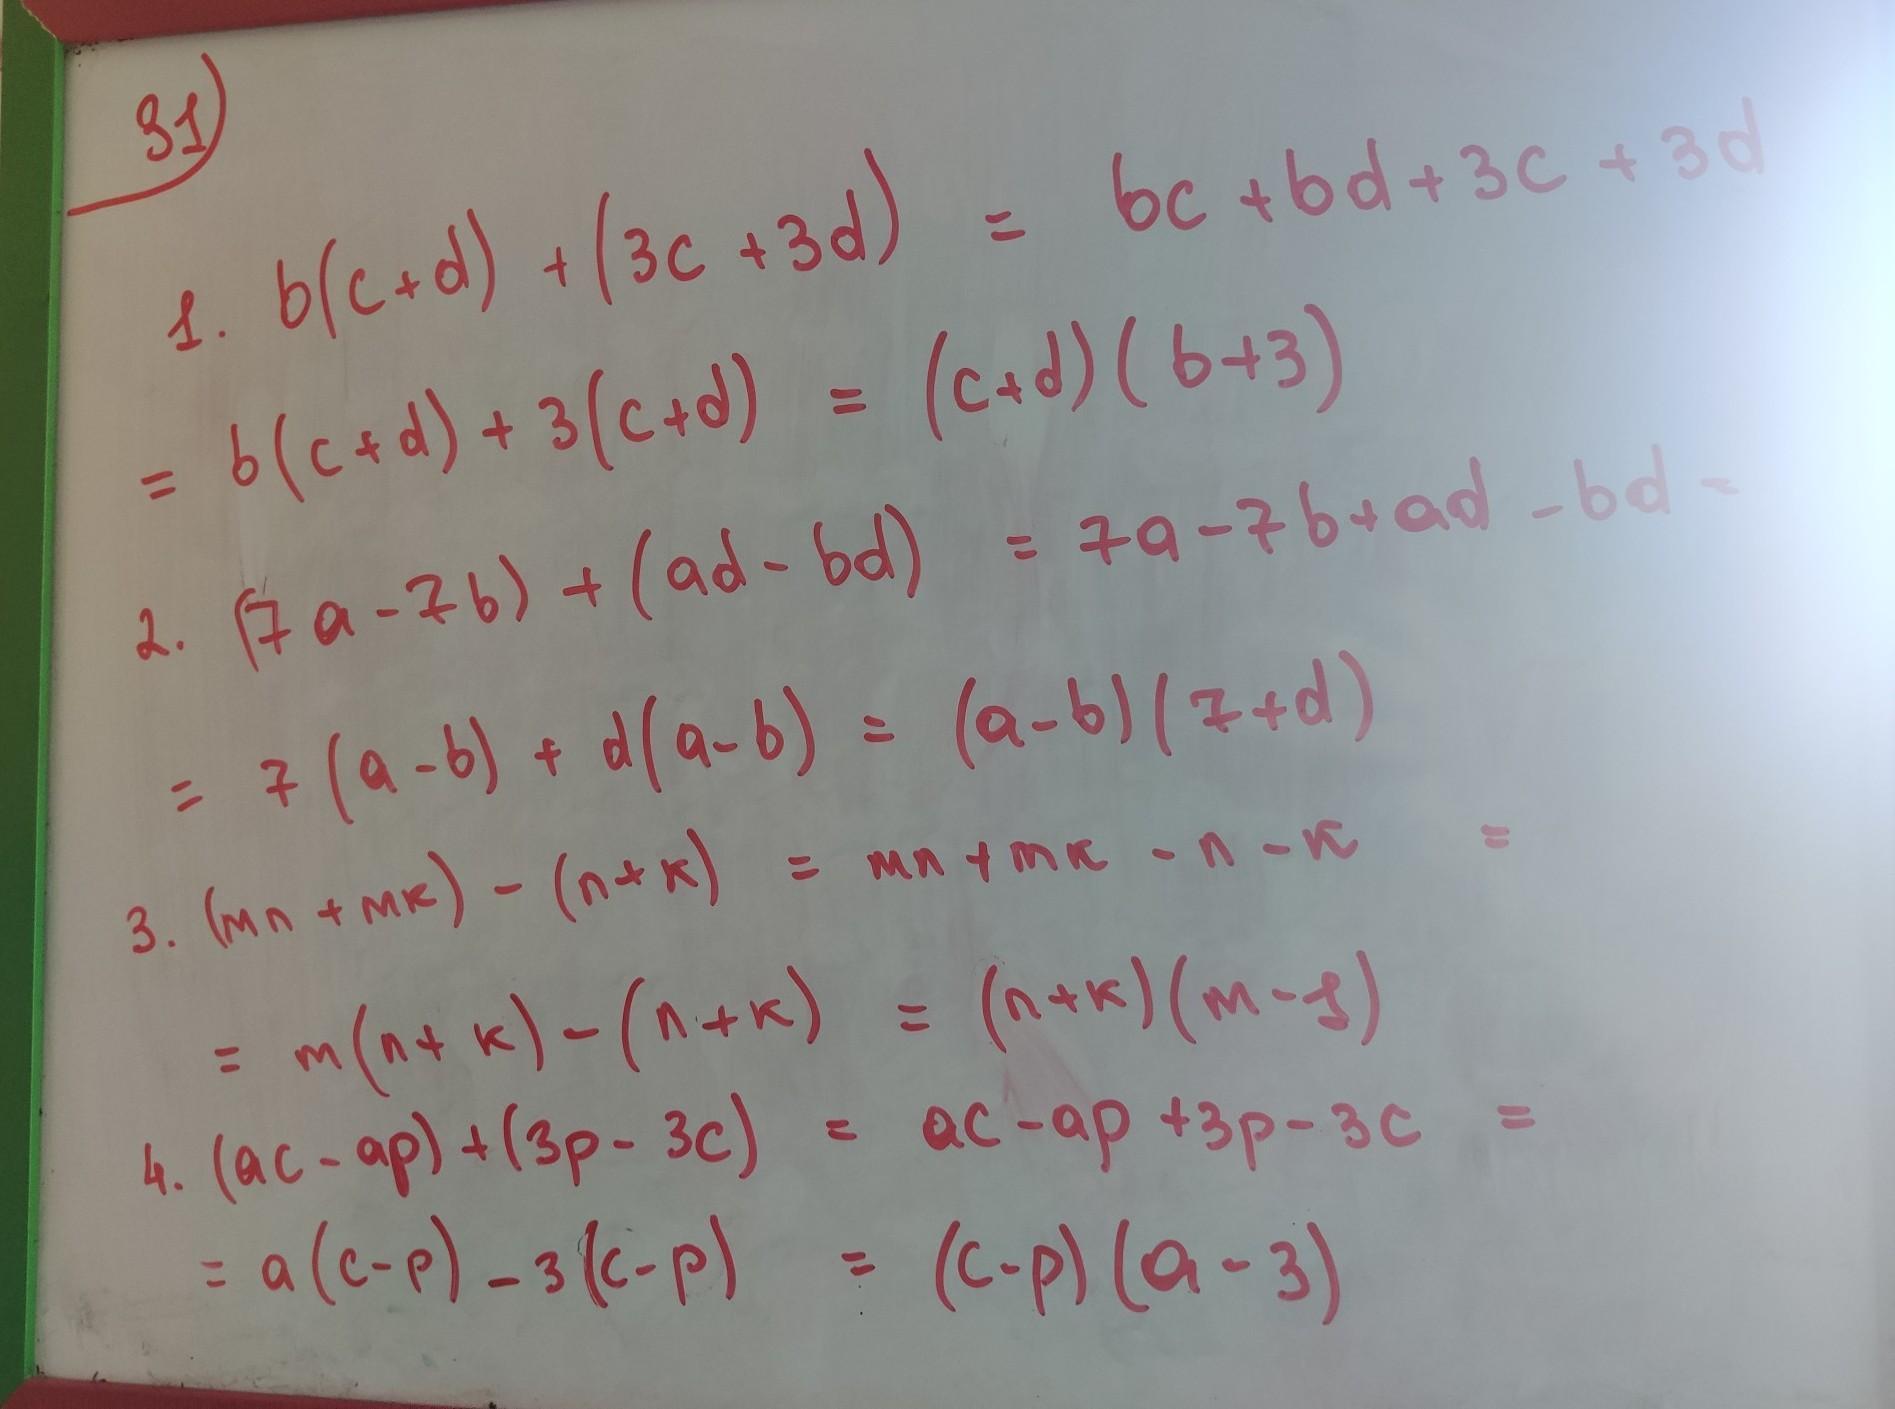 31)
1. b(c+d) + (3c+3d) = bc+bd+3c+3d
= b(c+d)+3(c+d) = (c+d)(b+3)
2. (7a-7b)+(ad-bd) = 7a-7b+ad-bd=
= 7(a-b)+d(a-b) = (a-b)(7+d)
3. (mn+mk)-(n+k) = mn+mk-n-k =
= m(n+k)-(n+k) = (n+k)(m-1)
4. (ac-ap)+(3p-3c) = ac-ap+3p-3c =
= a(c-p)-3(c-p) = (c-p)(a-3)